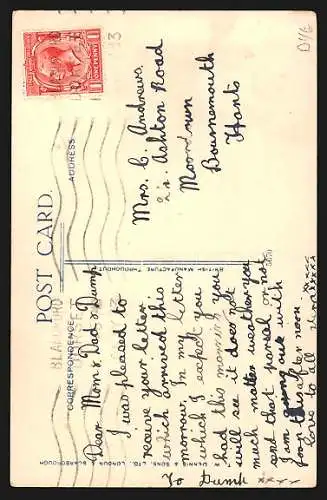 POST CARD.
CORRESPONDENCE
ADDRESS
Dear Mom & Dad & Dump
I was pleased to
receive your letter
which arrived this
morrow. In my letter
which I expect you
had this morning you
will see it does not
much matter weather you
send that parsel or not
I am going out with
Joan this after noon.
love to all
xxxx
To Dump xxxx
Mrs. C. Andrews.
Ashton Road
Moordown
Bournemouth
Hants
BRITISH MANUFACTURE THROUGHOUT
DENNIS & SONS, LTD., LONDON & SCARBOROUGH
BLANDFORD
ONE PENNY